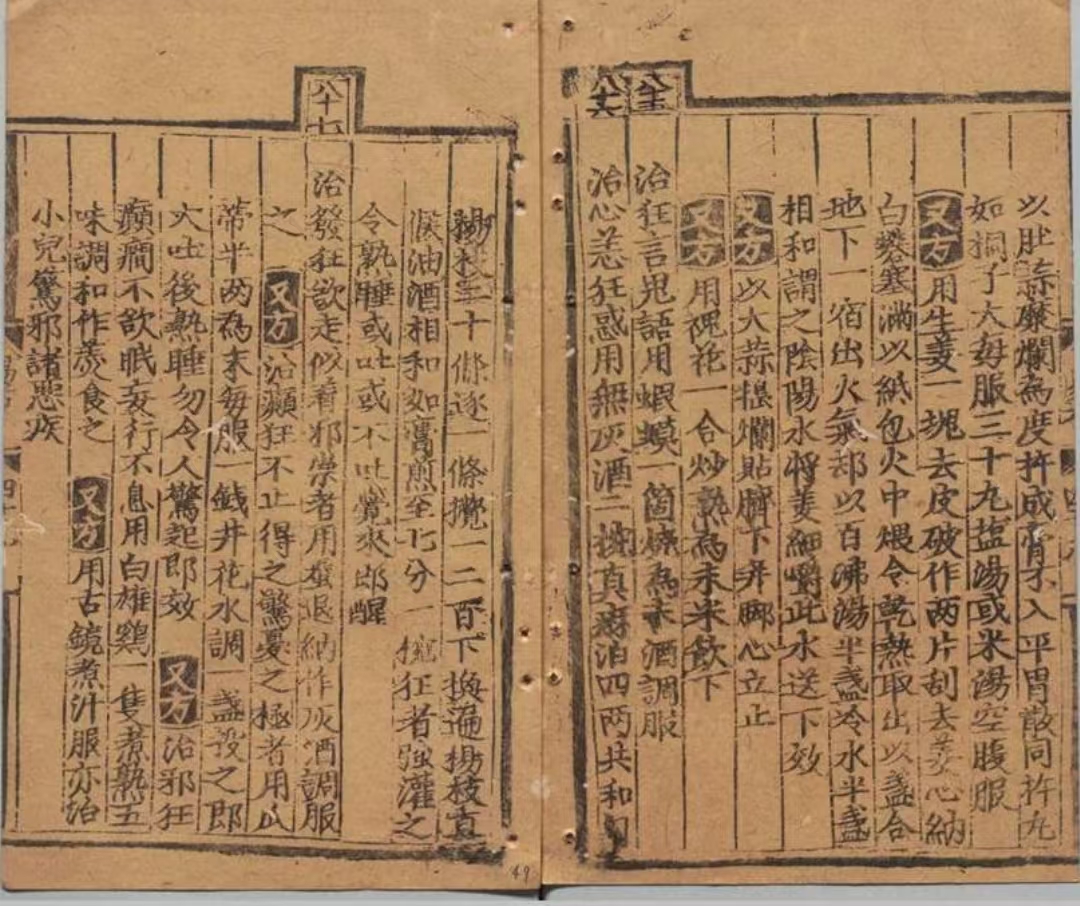 八十五
八十六
以肚蒜糜爛為度杵成膏不入平胃散同杵丸
如桐子大每服三十九盐湯或米湯空腹服
又方用生姜一塊去皮破作两片刮去姜心納
白礬塞满以紙包火中煨令乾熟取出以盏合
地下一宿出火氣却以百沸湯半盏冷水半盏
相和謂之陰陽水将姜細嚼此水送下效
又方以大蒜搥爛貼臍下并脚心立止
又方用槐花一合炒熟為末米飲下
治狂言鬼語用蝦蟆一箇燒為末酒調服
治心恙狂惑用無灰酒二椀真麻油四两共和匀
八十七
楊枝二十條逐一條攪一二百下換遍楊枝直
候油酒相和如膏煎至七分一椀狂者强灌之
令熟睡或吐或不吐覺來即醒
治發狂欲走似着邪祟者用蚕退納作灰酒調服
之 又方治癲狂不止得之驚憂之極者用瓜
蒂半两為末每服一錢井花水調一盏投之即
大吐後熟睡勿令人驚起即效 又方治邪狂
癲癇不欲眠妄行不息用白雄鷄一隻煮熟五
味調和作羹食之 又方用古鏡煮汁服亦治
小兒驚邪諸惡疾
49